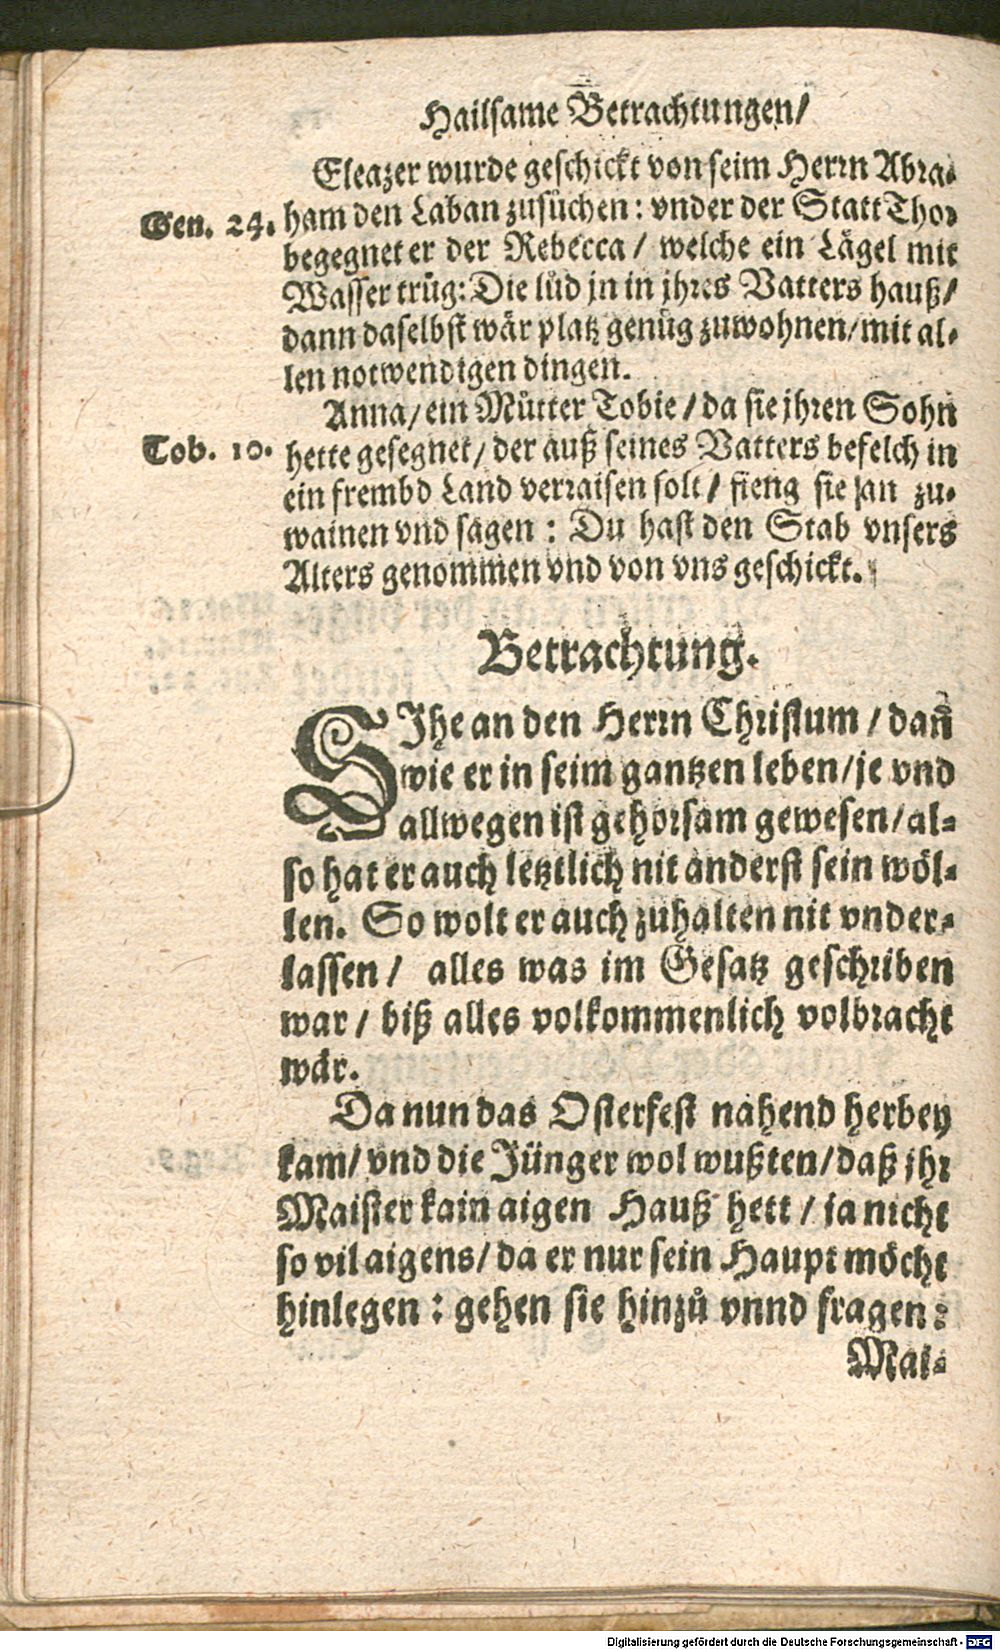 Hailsame Betrachtungen/
Eleazer wurde geschickt von seim Herrn Abra-
Gen. 24. ham den Laban zusůchen: vnder der Statt Thor
begegnet er der Rebecca / welche ein Lägel mit
Wasser trůg: Die lůd jn in jhres Vatters hauß/
dann daselbst wär platz genůg zuwohnen/mit al-
len notwendigen dingen.
Anna/ein Můtter Tobie/da sie jhren Sohn
Tob. 10. hette gesegnet/ der auß seines Vatters befelch in
ein frembd Land verraisen solt/ fieng sie an zu-
wainen vnd sagen : Du hast den Stab vnsers
Alters genommen vnd von vns geschickt.
Betrachtung.
SIhe an den Herrn Christum / dañ
wie er in seim gantzen leben/je vnd
allwegen ist gehorsam gewesen/al-
so hat er auch letztlich nit anderst sein wöl-
len. So wolt er auch zuhalten nit vnder-
lassen/ alles was im Gesatz geschriben
war / biß alles volkommenlich volbracht
wär.
Da nun das Osterfest nahend herbey
kam/ vnd die Jünger wol wußten/daß jhr
Maister kain aigen Hauß hett / ja nicht
so vil aigens/ da er nur sein Haupt möcht
hinlegen : gehen sie hinzů vnnd fragen:
Mai-
Digitalisierung gefördert durch die Deutsche Forschungsgemeinschaft - DFG